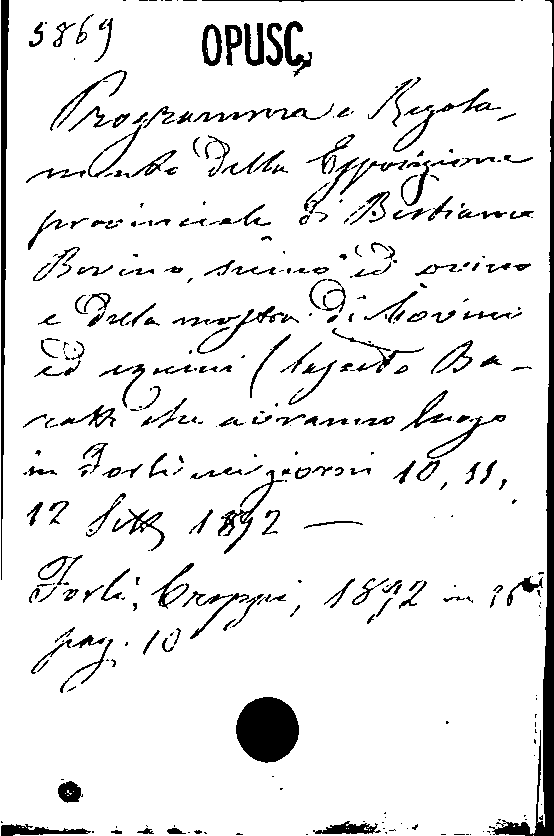 5869
OPUSC,
Programma e Regola-
mento della Esposizione
provinciale di Bestiame
Bovino, suino ed ovino
e della mostra di bovini
ed equini (lascito Ba-
ratti che avranno luogo
in Forlì nei giorni 10, 11,
12 Sett 1892 —
Forlì, Croppi, 1892 in 16°
pag. 10